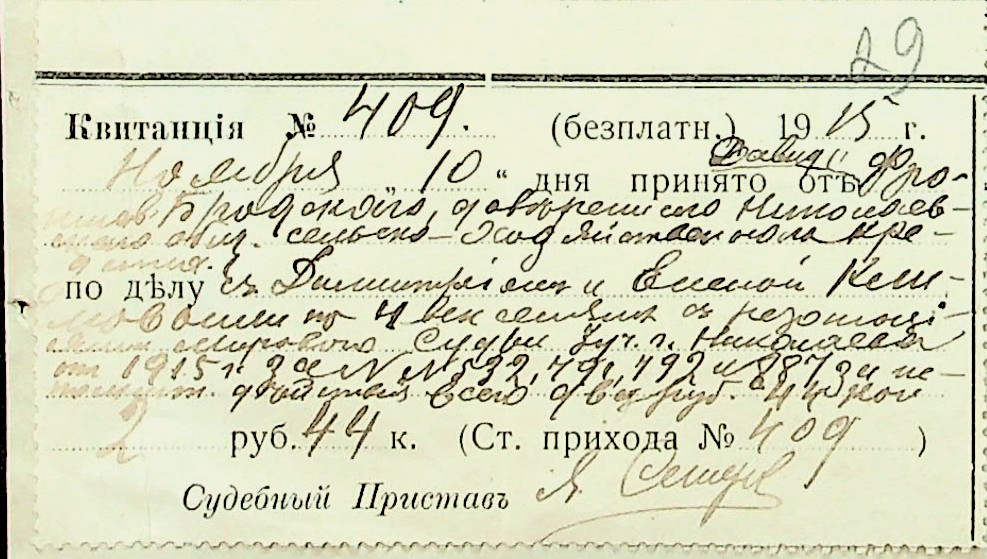 29
Квитанція № 409. (безплатн.) 1915 г.
Давида
Ноября „ 10 “ дня принято отъ Фро-
Бродского, довѣренного Николаев-
общ. сельско-хозяйственнаго кре-
по дѣлу съ Димитріемъ и Еленой Кли-
мовыми по 4 векселямъ съ резолюці-
мирового Судьи 2 уч. г. Николаева
от 1915 г. за № № 532, 491, 492 и 287 за
всего два руб. 44 коп
2 руб. 44 к. (Ст. прихода № 409 )
Судебный Приставъ